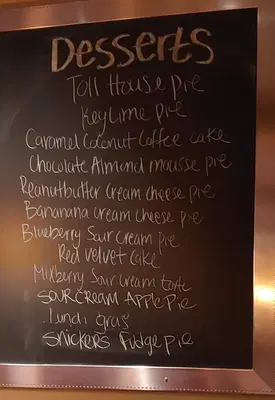 Desserts
Toll House pie
Keylime pie
Caramel Coconut Coffee cake
Chocolate Almond mousse pie
Peanutbutter Cream cheese pie
Bananana cream cheese pie
Blueberry Sour cream pie
Red velvet cake
Mixberry Sour cream torte
SOUR CREAM Apple Pie
Lundi gras
Snickers Fudge pie